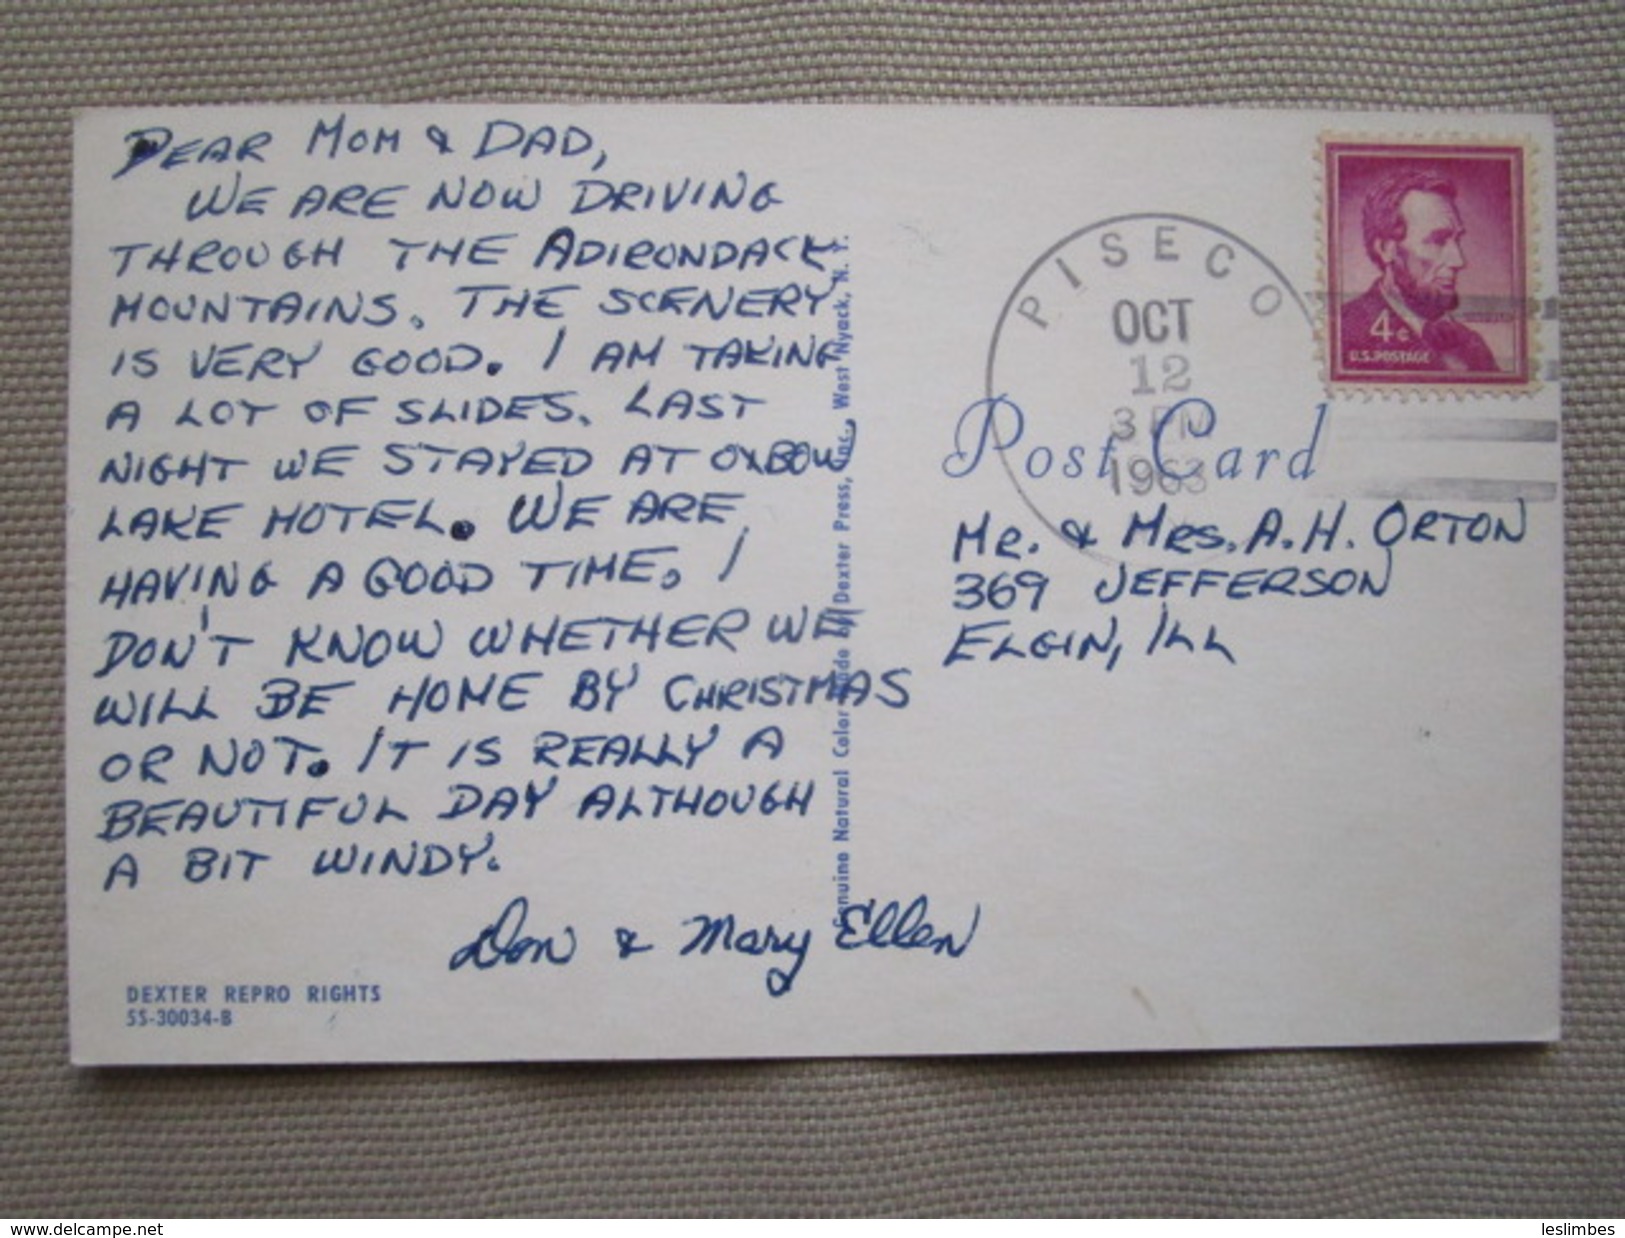 DEAR MOM & DAD,
WE ARE NOW DRIVING
THROUGH THE ADIRONDACK
MOUNTAINS. THE SCENERY
IS VERY GOOD. I AM TAKING
A LOT OF SLIDES. LAST
NIGHT WE STAYED AT OXBOW
LAKE HOTEL. WE ARE
HAVING A GOOD TIME. I
DON'T KNOW WHETHER WE
WILL BE HOME BY CHRISTMAS
OR NOT. IT IS REALLY A
BEAUTIFUL DAY ALTHOUGH
A BIT WINDY.
Don & Mary Ellen
DEXTER REPRO RIGHTS
55-30034-B
Genuine Natural Color Made by Dexter Press, Inc., West Nyack, N. Y.
PISECO
OCT
12
3 PM
1963
4¢
U.S. POSTAGE
Post Card
MR. & MRS. A. H. ORTON
369 JEFFERSON
ELGIN, ILL
www.delcampe.net
leslimbes